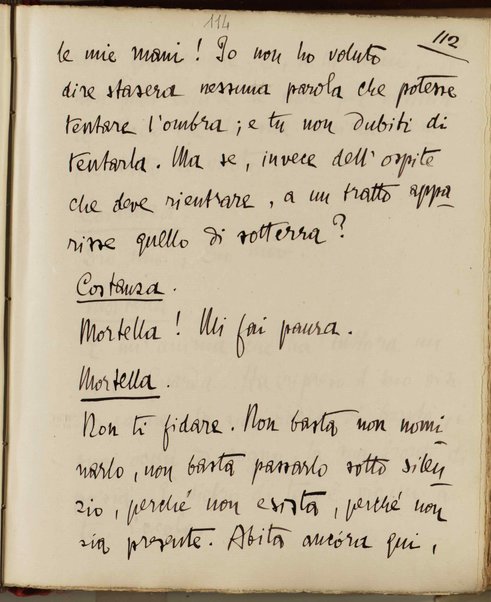 114
112
le mie mani! Io non ho voluto
dire stasera nessuna parola che potesse
tentare l'ombra; e tu non dubiti di
tentarla. Ma se, invece dell'ospite
che deve rientrare, a un tratto appa-
risse quello di sotterra?
Costanza.
Mortella! Mi fai paura.
Mortella.
Non ti fidare. Non basta non nomi-
narlo, non basta passarlo sotto silen-
zio, perché non esista, perché non
sia presente. Abita ancóra qui,